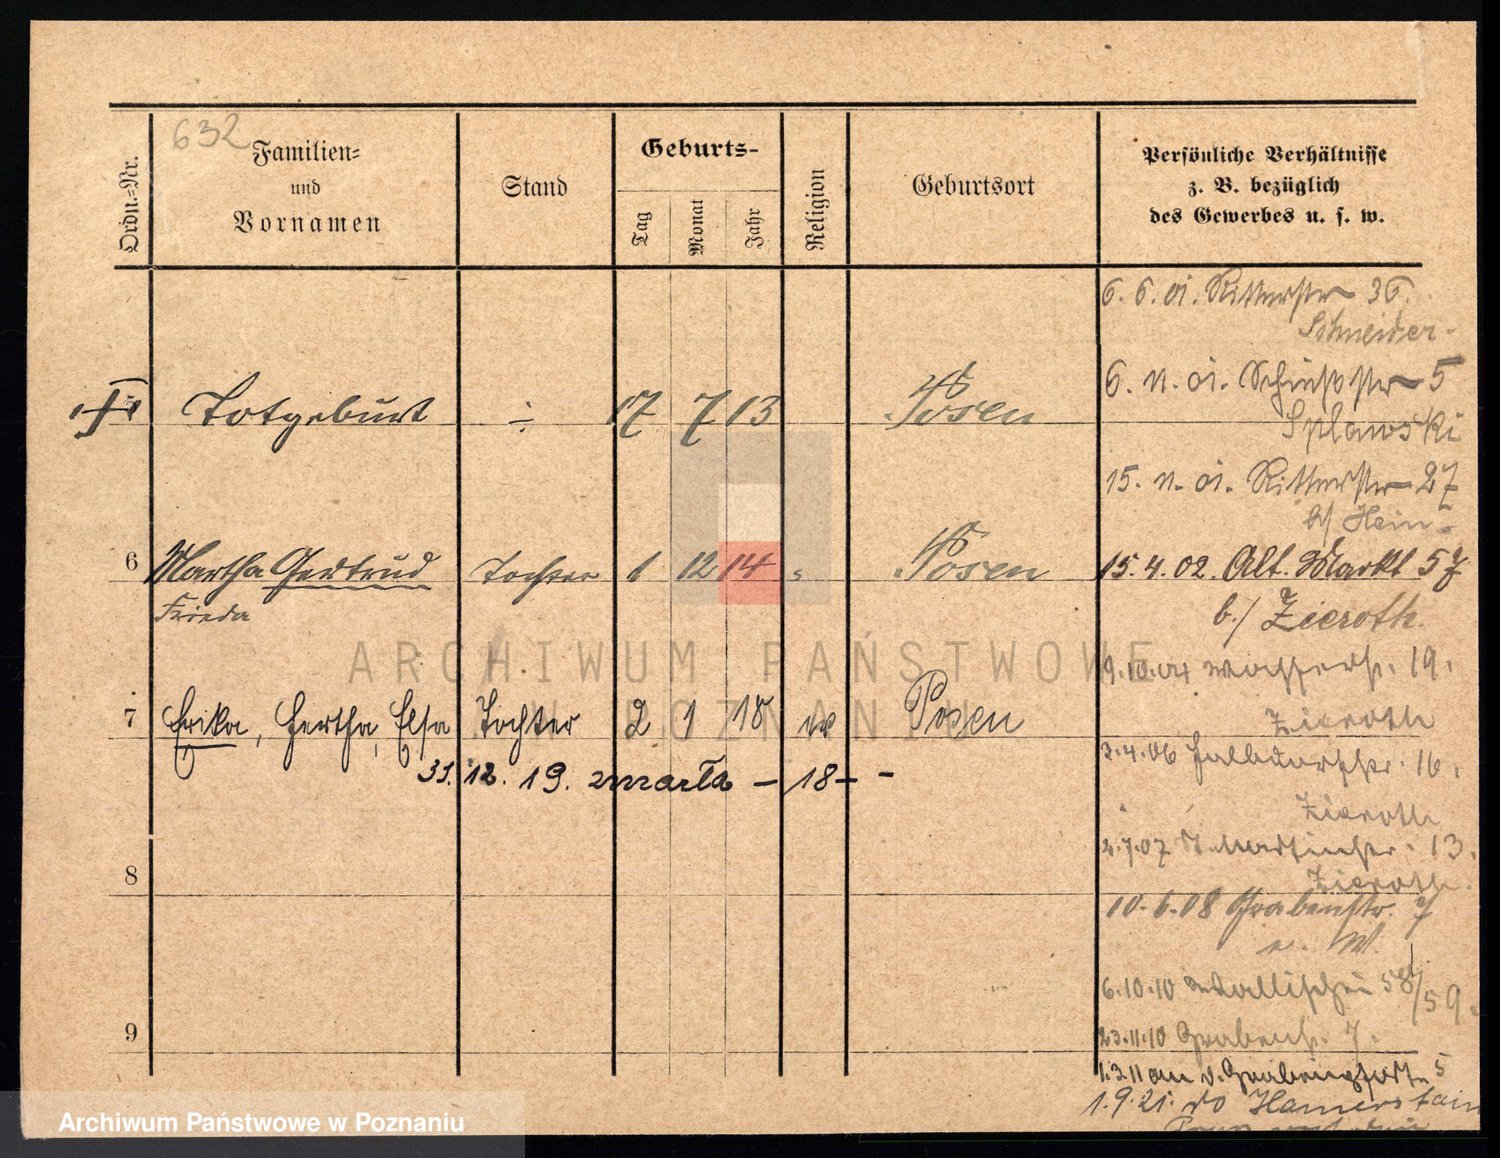 632
Ordn.-Nr.
Familien-
und
Vornamen
Stand
Geburts-
Tag
Monat
Jahr
Religion
Geburtsort
Persönliche Verhältnisse
z. B. bezüglich
des Gewerbes u. s. w.
6. 6. 01. Ritterstr 36.
Schneider-
Totgeburt ÷ 17 7 13 Posen
6. 11. 01. Schießstr 5
Splawski
15. 11. 01. Ritterstr 27
b/ Hein-
6 Martha Gertrud Tochter 1 12 14 Posen
Frieda
15. 4. 02. Alt. Markt 57
b./ Zieroth.
9.10.04 19.
Zieroth
7 Erika, Hertha, Elsa Tochter 2 1 18 Posen
31. 12. 19. zmarła - 18 - -
3.4.06 16.
Zieroth
2.7.07 St. Martinstr. 13.
Zieroth.
8
10. 6. 08 Grabenstr. 7
6.10.10 Wallischei 58/59.
23.11.10 Grabenst. 7.
9
1.3.11 5
1.9.21. do
ARCHIWUM PAŃSTWOWE
W POZNANIU
Archiwum Państwowe w Poznaniu